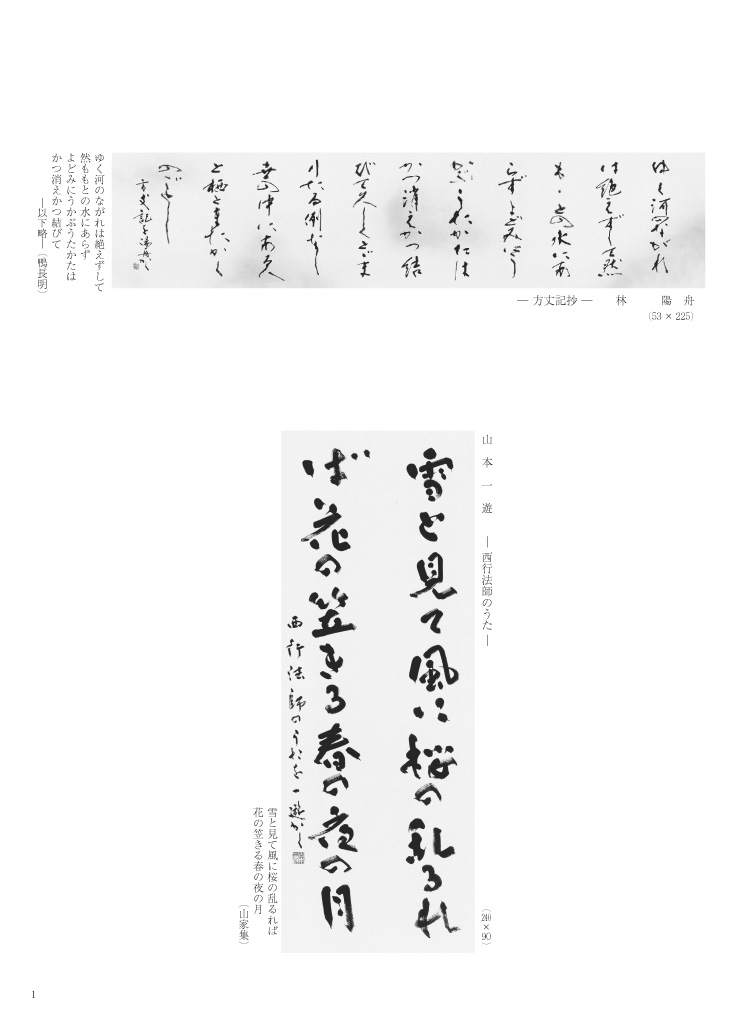 ゆく河のながれ
は絶えずして然
も、もとの水にあ
らずよどみにう
かぶうたかたは
かつ消えかつ結
びて久しくとどま
りたる例なし
世の中にある人
と栖とまたかく
のごとし
方丈記を陽舟かく
― 方丈記抄 ― 林 陽舟
(53 × 225)
ゆく河のながれは絶えずして
然ももとの水にあらず
よどみにうかぶうたかたは
かつ消えかつ結びて
―以下略―(鴨長明)
山本一遊 ― 西行法師のうた ―
(240×90)
雪と見て風に桜の乱るれ
ば花の笠きる春の夜の月
西行法師のうたを 一遊かく
雪と見て風に桜の乱るれば
花の笠きる春の夜の月
(山家集)
1